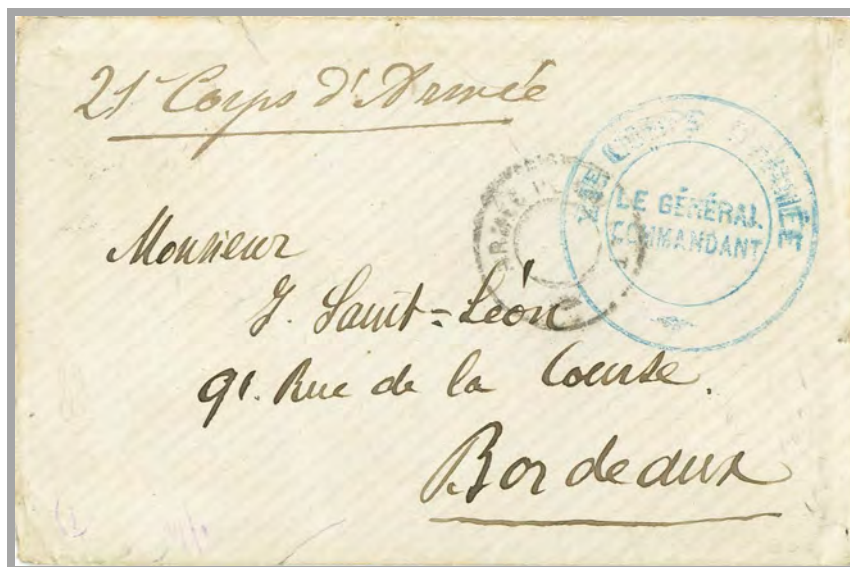 21e Corps d'Armée
XXIE CORPS D'ARMÉE
LE GÉNÉRAL
COMMANDANT
ARMÉE
Monsieur
J. Saint=Léon
91. Rue de la Course.
Bordeaux